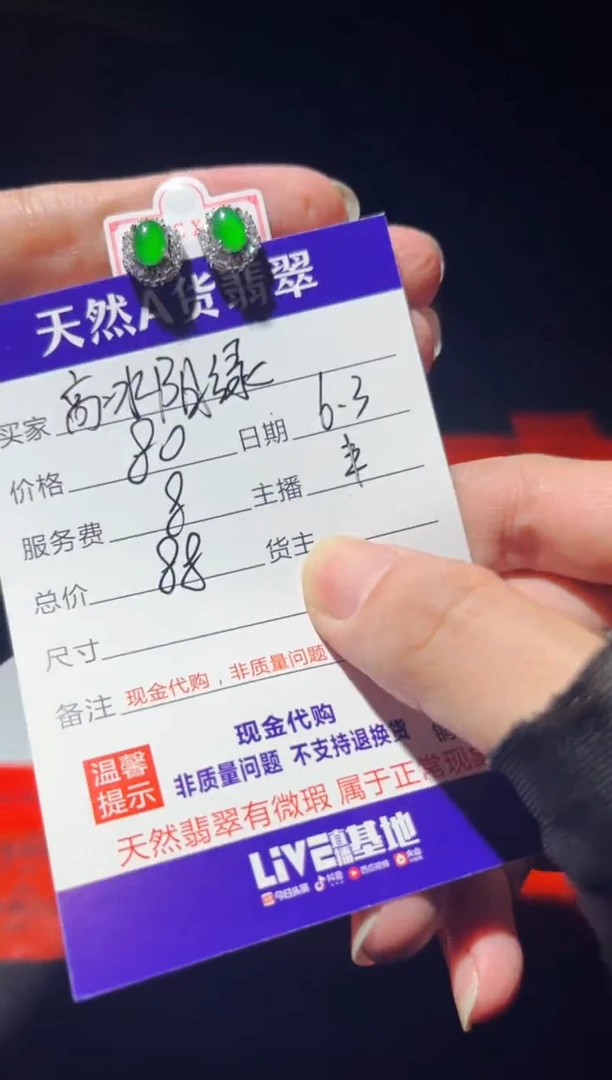 天然A货翡翠
买家 高冰阳绿
价格 80 日期 6.3
服务费 8 主播
总价 88 货主
尺寸
备注 现金代购，非质量问题
温馨提示
现金代购
非质量问题 不支持退换货
天然翡翠有微瑕 属于正常现
LIVE直播基地
今日头条 抖音 西瓜视频 火山